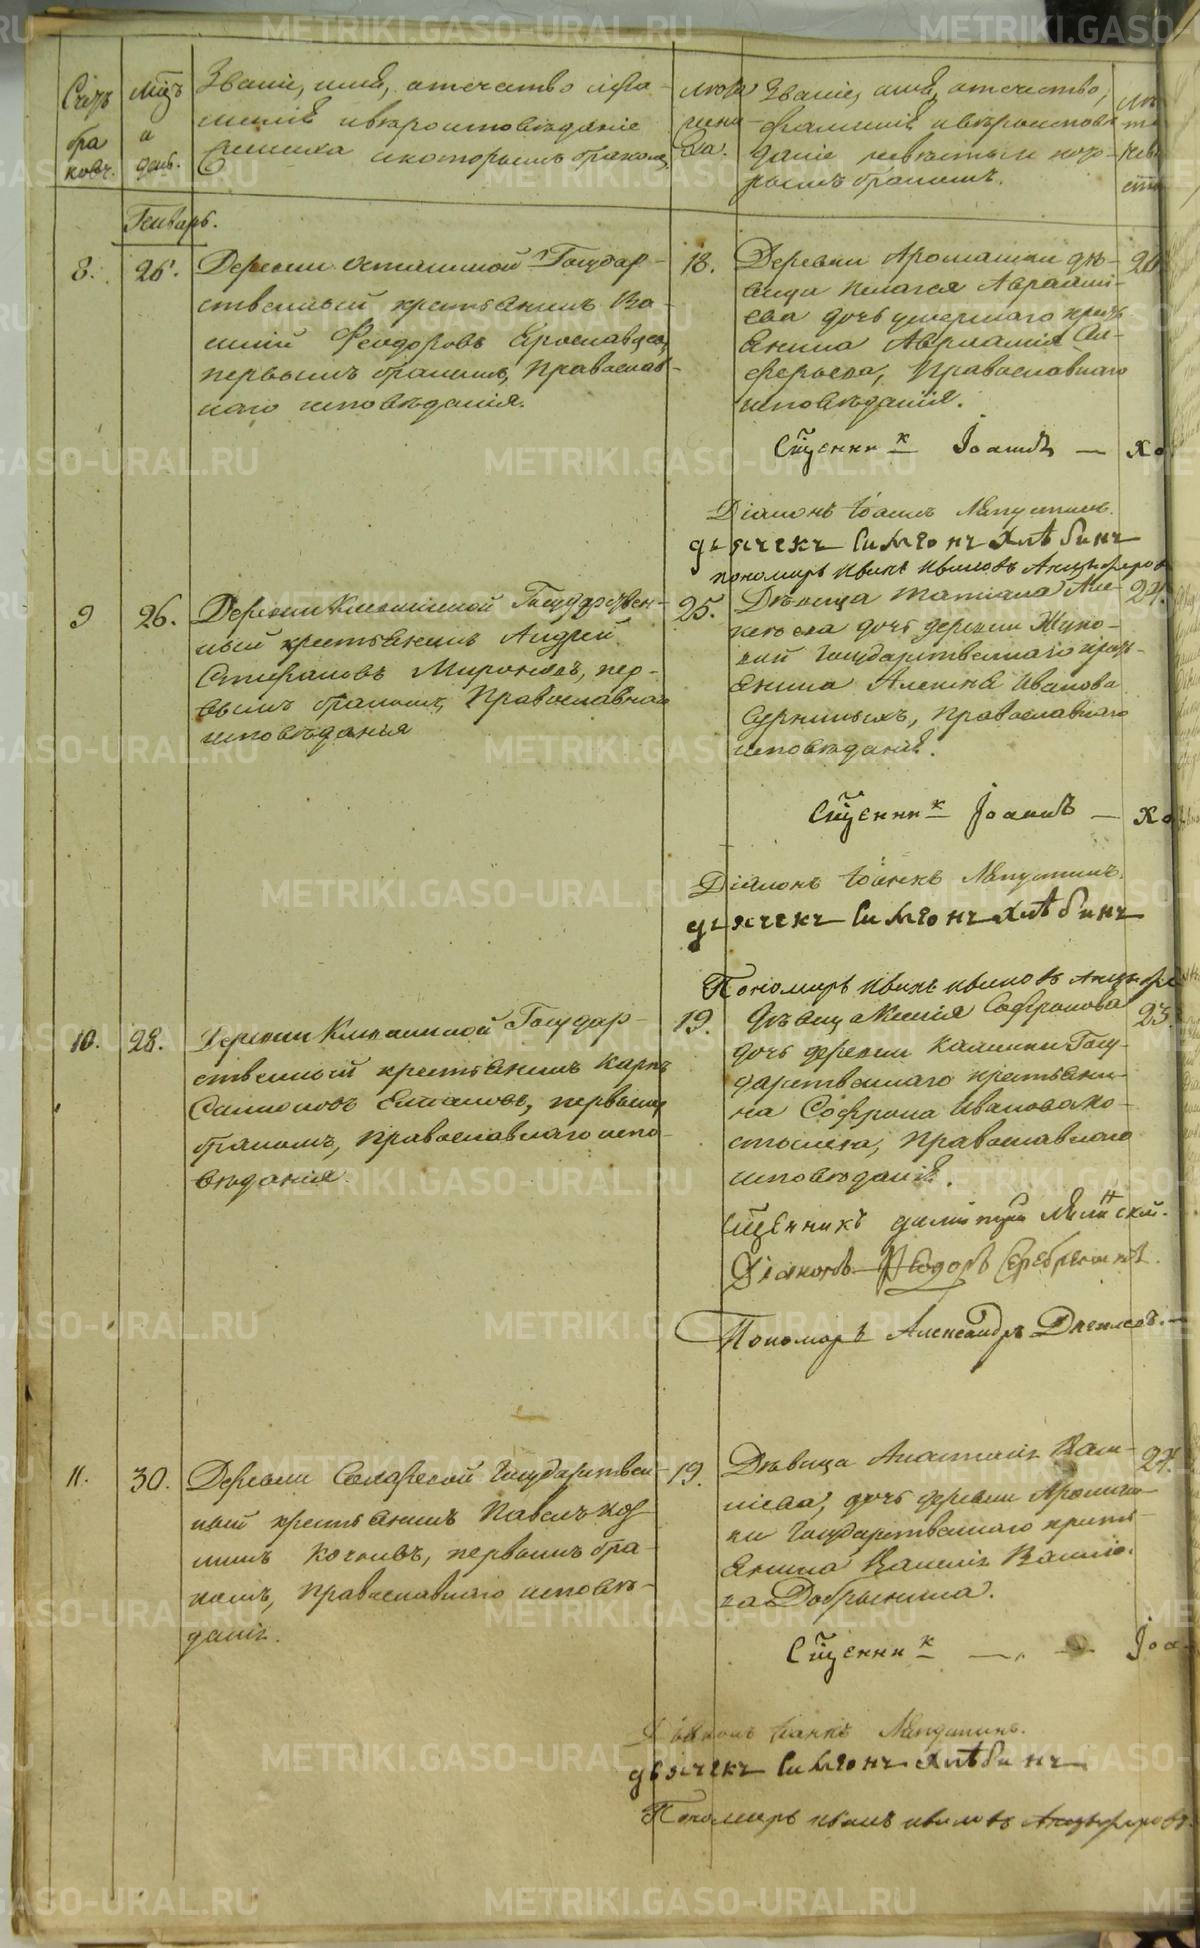 Счетъ браковъ.
Мцъ и день.
Званіе, имя, отчество, фамиліе и вѣроисповѣданіе жениха и которымъ бракомъ
лѣта жениха.
Званіе, имя, отечество, фамиліе и вѣроисповѣданіе невѣсты и которымъ бракомъ.
Январь.
8. 26. Деревни Государ-
ственный крестьянинъ Ва-
силій Феодоровъ Ярославцевъ,
первымъ бракомъ, Православ-
наго исповѣданія.
18.
Деревни Аромашки дѣ-
вица Пелагея Авраамі-
ева дочь умершаго крест-
янина Авраамія Ал-
ферьева, Православнаго
исповѣданія.
Сщенникъ Іоаннъ — Хо
Діаконъ Іоаннъ
дьячекъ Симеонъ Хлѣбинъ
пономарь Иванъ Ивановъ
9 26. Деревни Клевакиной Государствен-
ный крестьянинъ Андрей
Стефановъ Мироновъ, пер-
вымъ бракомъ, Православнаго
исповѣданія
25.
Дѣвица Татіана Але-
ксѣева дочь деревни
Государственнаго крест-
янина Алексѣя Иванова
Православнаго
исповѣданія.
24.
Сщенникъ Іоаннъ — Хо
Діаконъ Іоаннъ
дьячекъ Симеонъ Хлѣбинъ
Пономарь Иванъ Ивановъ
10. 28. Деревни Клевакиной Государ-
ственный крестьянинъ Карпъ
первымъ
бракомъ, Православнаго испо-
вѣданія.
19.
Дѣвица Ксенія Софронова
дочь деревни Калинки Госу-
дарственнаго крестьяни-
на Софрона Иванова Ко-
Православнаго
исповѣданія.
23.
Сщенникъ Димитрій
Діаконъ Феодоръ Серебренниковъ
Пономарь Александръ
11. 30. Деревни Государствен-
ный крестьянинъ Павелъ Коз-
минъ первымъ бра-
комъ, Православнаго исповѣ-
данія.
19.
Дѣвица Анастасія Васи-
ліева, дочь деревни Аромаш-
ки Государственнаго крест-
янина Василія Василіе-
ва Добрынина.
24.
Сщенникъ — Іоа
Діаконъ Іоаннъ
дьячекъ Симеонъ Хлѣбинъ
Пономарь Иванъ Ивановъ
METRIKI.GASO-URAL.RU